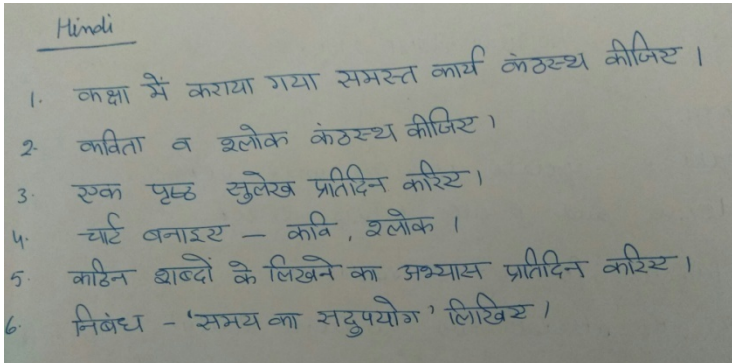 Hindi
1. कक्षा में कराया गया समस्त कार्य कंठस्थ कीजिए।
2. कविता व श्लोक कंठस्थ कीजिए।
3. एक पृष्ठ सुलेख प्रतिदिन करिए।
4. चार्ट बनाइए – कवि, श्लोक।
5. कठिन शब्दों के लिखने का अभ्यास प्रतिदिन करिए।
6. निबंध – 'समय का सदुपयोग' लिखिए।